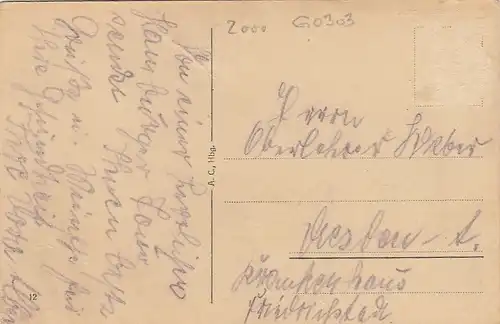 2000 G0303
Von einer herrlichen
Hamburger Tour
sendet Ihnen beste
Grüße u. Wünsche für
Ihre Gesundheit
Ihre
A. C., Hbg.
12
Herrn
Oberlehrer Weber
Dresden - A.
Krankenhaus
Friedrichstadt